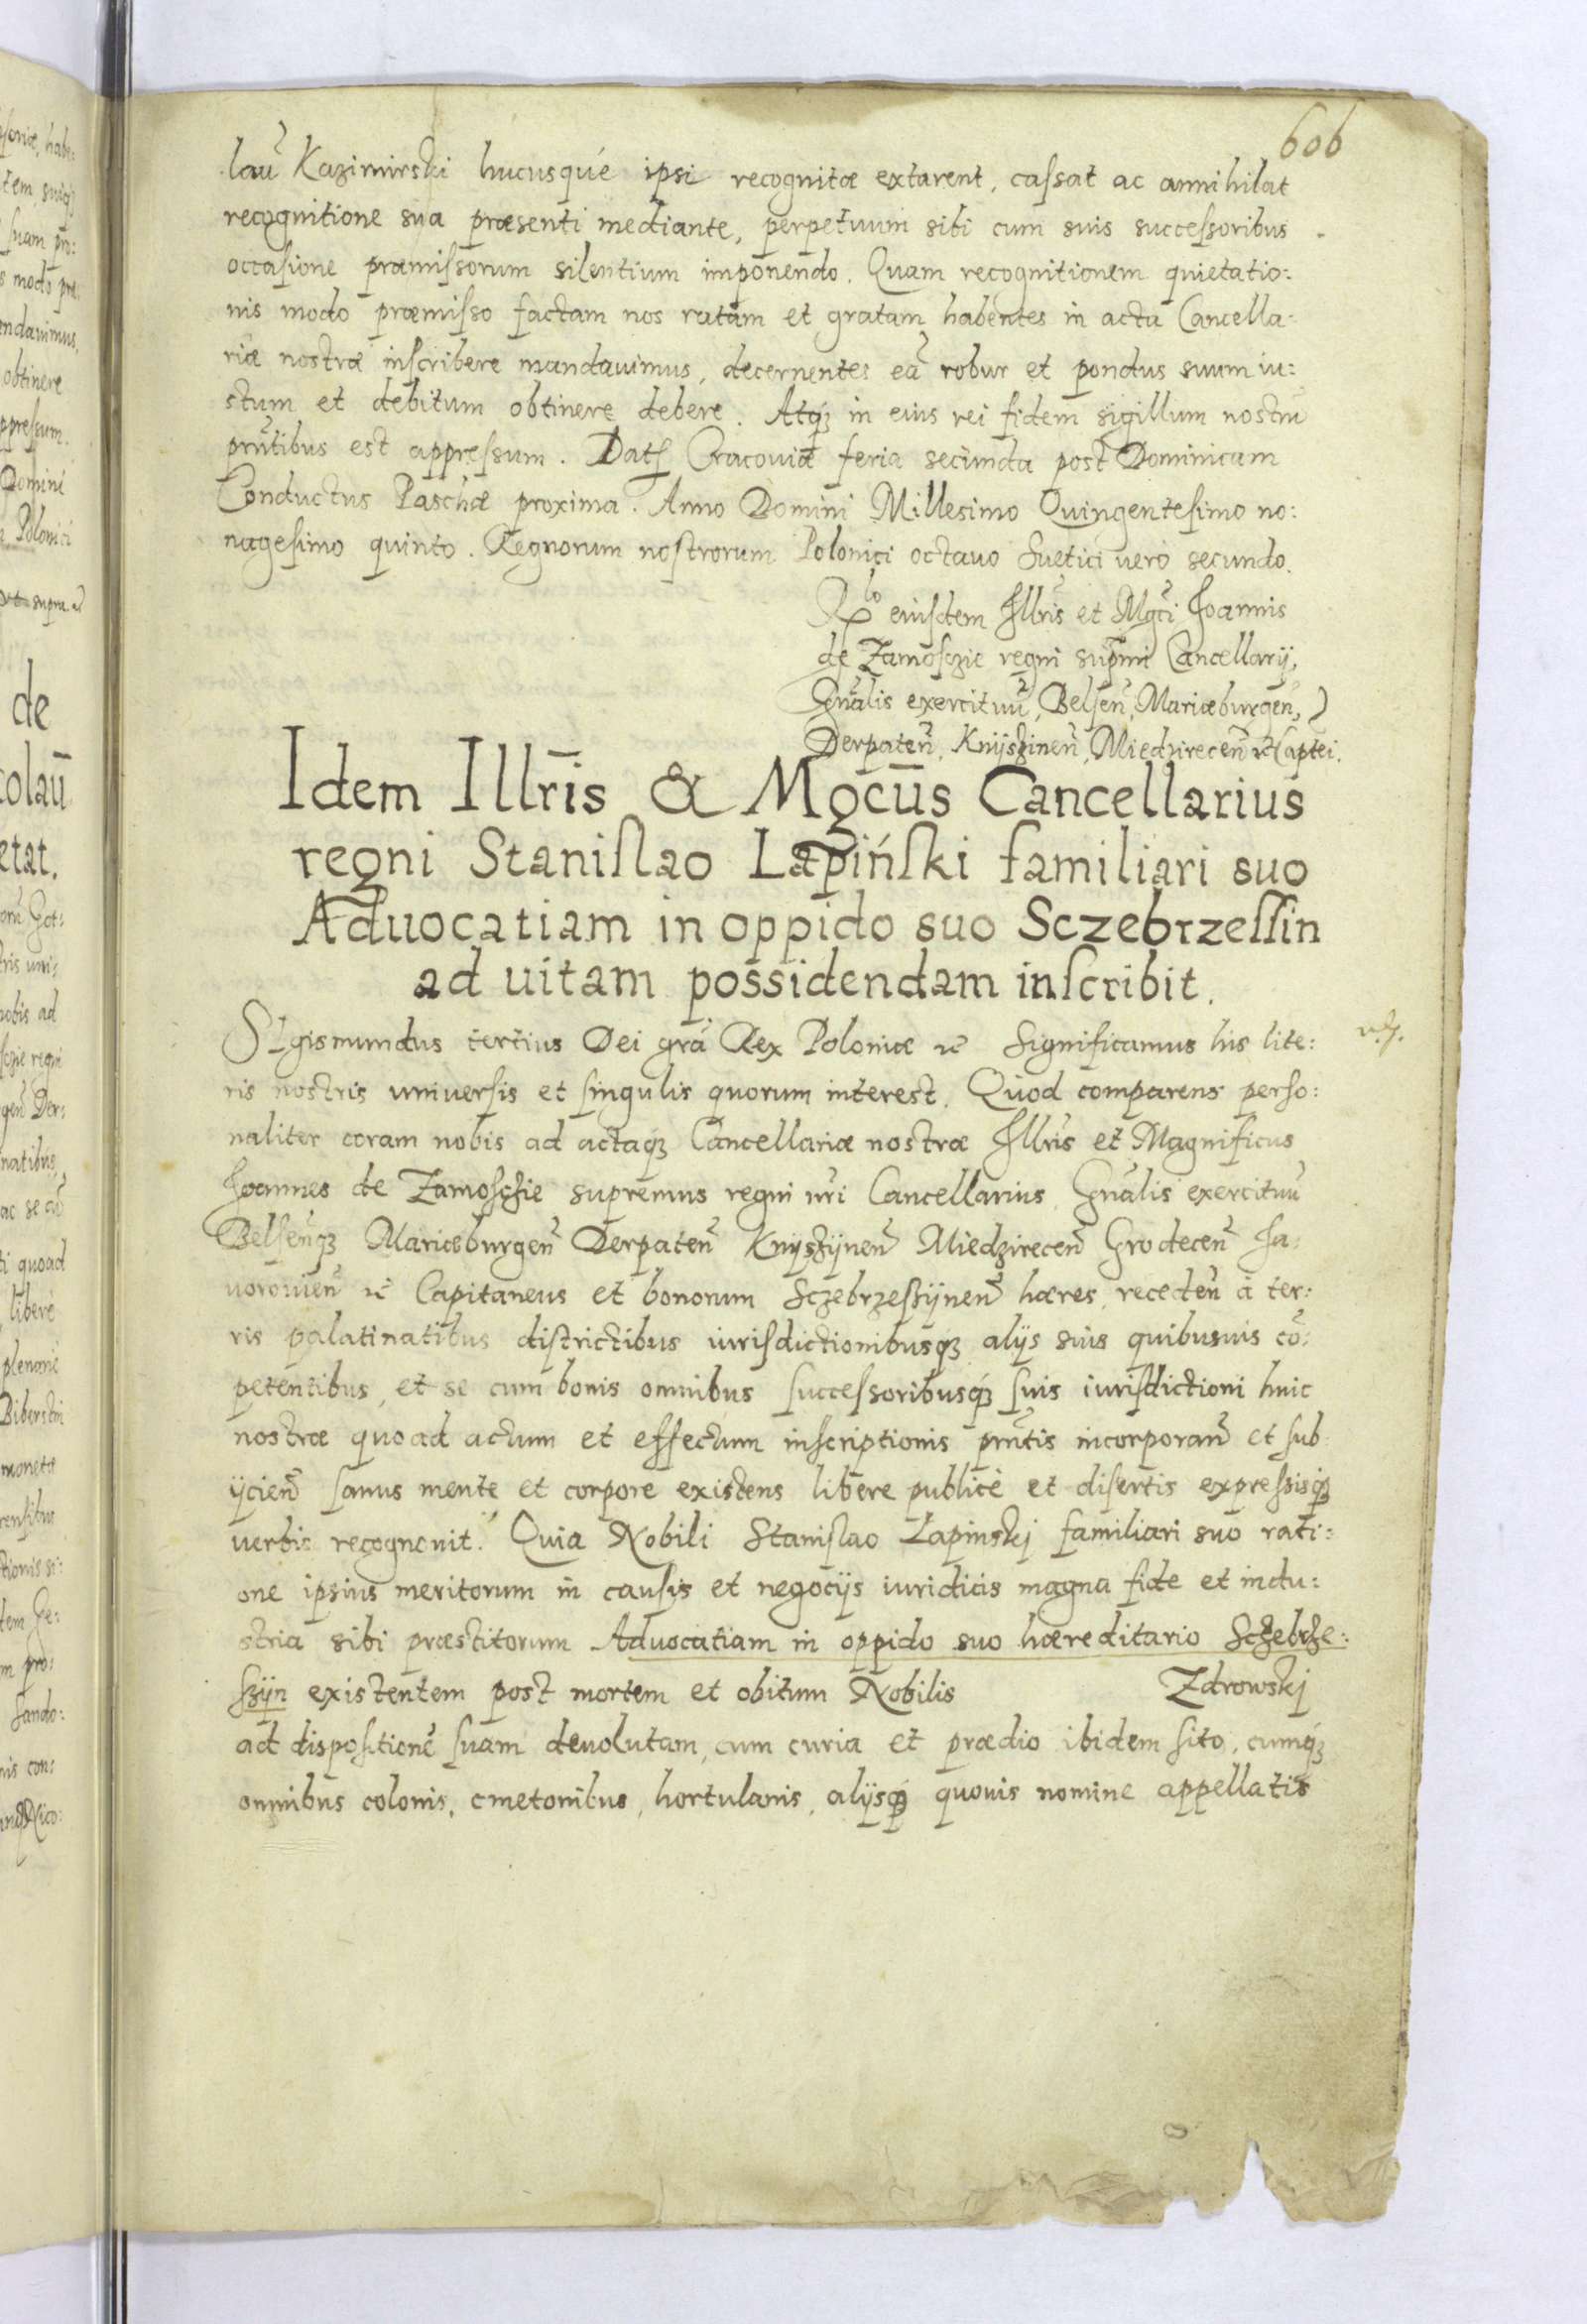 606
lau̅ Kazimirski hucusqué ipsi recognitæ extarent, caſsat ac annihilat
recognitione sua præsenti mediante, perpetuum sibi cum suis succeſsoribus
occaſione præmiſsorum silentium imponendo. Quam recognitionem quietatio:
nis modo præmiſso factam nos ratam et gratam habentes in acta Cancella:
riæ nostræ inſcribere mandauimus, decernentes ea̅ robur et pondus suum iu:
stum et debitum obtinere debere. Atqꝫ in eius rei fidem sigillum nostru̅
pru̅tibus est appreſsum. Datꝭ Cracouiæ feria secunda post Dominicam
Conductus Paschæ proxima. Anno Domini Millesimo Quingenteſimo no:
nageſimo quinto. Regnorum noſtrorum Polonici octauo Suetici uero secundo.
eiuſdem Illris̅ et Mgci̅ Joannis
de Zamoſczie regni supmi̅ Cancellarij,
Gnalis̅ exercituu̅, Belſen̅, Mariæburgen̅,
Derpaten̅, Knijszinen̅, Miedzirecen̅ ꝛc̅ Captei.
Idem Illris̅ & Mgcus̅ Cancellarius
regni Staniſlao Lapińſki familiari suo
Aduocatiam in oppido suo Sczebrzeſſin
ad uitam possidendam inſcribit.
SIgismundus tertius Dei gra̅ Rex Poloniæ ꝛc̅ Significamus his lite:
ris nostris uniuerſis et ſingulis quorum interest. Quod comparens perſo:
naliter coram nobis ad actaqꝫ Cancellariæ nostræ Illris̅ et Magnificus
Joannes de Zamoſczie supremus regni nri̅ Cancellarius, Gnalis̅ exercituu̅
Belſen̅qꝫ Mariæburgen̅ Derpaten̅ Knyszijnen̅ Miedzirecen̅ Grodecen̅ Ja:
uorouien̅ ꝛc̅ Capitaneus et bonorum Sczebrzeſzijnen̅ hæres, receden̅ à ter:
ris palatinatibus diſtrictibus iuriſdictionibusqꝫ alijs suis quibusuis co̅:
petentibus, et se cum bonis omnibus ſucceſsoribusqꝫ ſuis iuriſdictioni huic
nostræ quoad actum et effectum inſcriptionis pru̅tis incorporan̅ et ſub
ijcien̅ ſanus mente et corpore existens libere publicè et diſertis expreſsisqꝫ
uerbis recognouit. Quia Nobili Staniſlao Lapinskj familiari suo rati:
one ipsius meritorum in cauſis et negocijs iuridicis magna fide et indu:
stria sibi præstitorum Aduocatiam in oppido suo hæreditario Sczebrze:
ſzijn existentem post mortem et obitum Nobilis Zdrowskj
ad dispoſitione̅ ſuam deuolutam, cum curia et prædio ibidem ſito, cumqꝫ
omnibus colonis, cmetonibus, hortulanis, alijsqꝫ quouis nomine appellatis